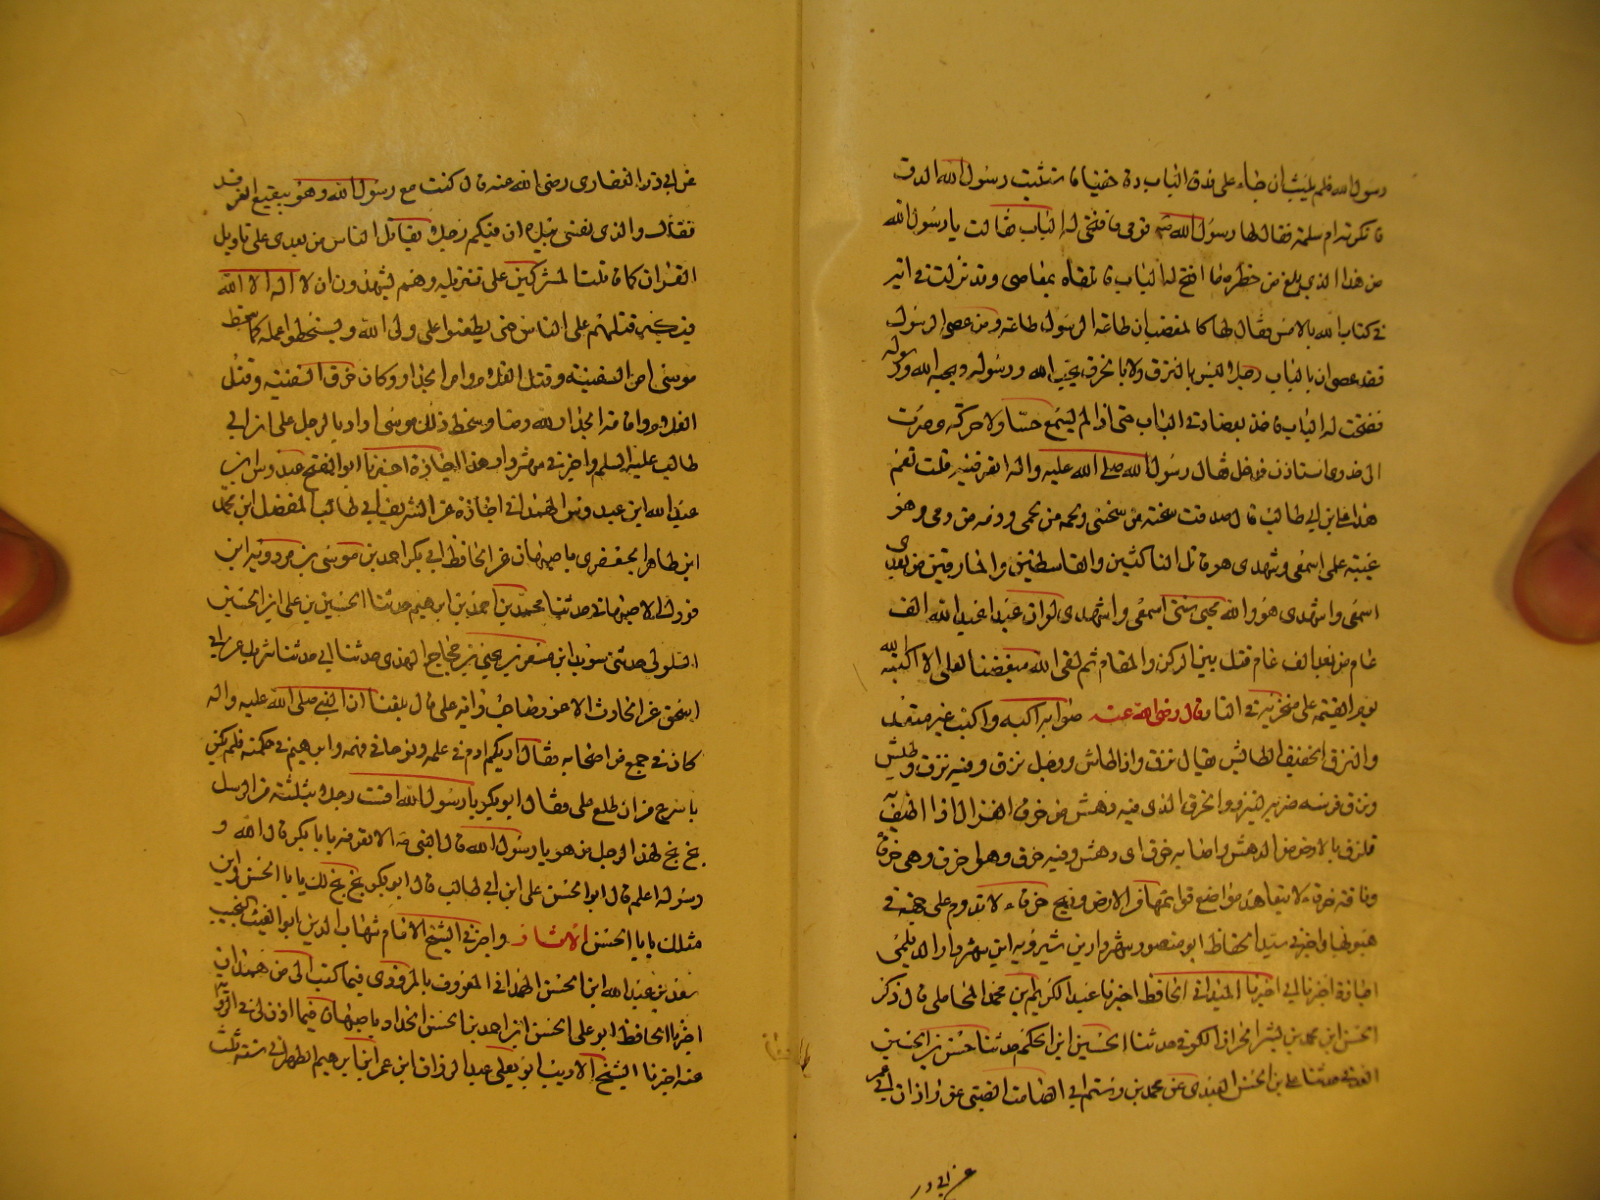 رسول الله فلم يلبث ان جاء علي فدق الباب دقا خفيا فاستثبت رسول الله الدق
فانكرته ام سلمة فقال لها رسول الله قومي فافتحي له الباب فقالت يا رسول الله
من هذا الذي بلغ من خطره ما افتح له الباب فاتلقاه بمعاصمي وقد نزلت في اية
في كتاب الله بالامس فقال لها كالمغضب ان طاعة الرسول طاعة الله ومن عصى الرسول
فقد عصى ان بالباب رجلا ليس بالنزق ولا بالخرق يحب الله ورسوله ويحبه الله ورسوله
ففتحت له الباب فاخذ بعضادتي الباب حتى اذا لم يسمع حسا ولا حركة وصرت
الى خدري استاذن فدخل فقال رسول الله صلى الله عليه واله اتعرفينه قلت نعم
هذا علي بن ابي طالب قال صدقت سحنته من سحنتي ولحمه من لحمي ودمه من دمي وهو
عيبة علمي اسمعي واشهدي هو قاتل الناكثين والقاسطين والمارقين من بعدي
اسمعي واشهدي هو والله محيي سنتي اسمعي واشهدي لو ان عبدا عبد الله الف
عام من بعد الف عام قتل بين الركن والمقام ثم لقى الله مبغضا لعلي لاكبه الله
يوم القيمة على منخريه في النار قال رضي الله عنه صوابه اكبه واكب غير متعد
والنزق الخفيف الطائش يقال نزق واذا طاش ورجل نزق وفيه نزق وطيش
ونزق فرسه ضربه لينزو والخرق الذي فيه دهش من خرق الغزال اذا
فلزق بالارض من الدهش واصابه خرق اى دهش وفيه خرق وهو اخرق وهى خرقاء
وناقة خرقاء لا تتعاهد مواضع قوائمها من الارض وريح خرقاء لا تدوم على جهة في
هبوبها واخبرني سيد الحفاظ ابو منصور شهردار بن شيرويه ابن شهردار الديلمي
اجازة اخبرنا ابي اخبرنا الميداني الحافظ اخبرنا عبد الكريم بن محمد المحاملي قال ذكر
الحسن ابن محمد بن بشر الخزاز الكوفي حدثنا الحسين ابن الحكم حدثنا حسن بن الحسين
العرني حدثنا علي بن الحسن العبدي عن محمد بن رستم ابي الصامت الضبي عن زاذان ابي عمر
عن ابي ذر
عن ابي ذر الغفاري رضى الله عنه قال كنت مع رسول الله وهو ببقيع الغرقد
فقال والذي نفسي بيده ان فيكم رجلا يقاتل الناس من بعدي على تاويل
القران كما قاتلت المشركين على تنزيله وهم يشهدون ان لا اله الا الله
فيكبر قتلهم على الناس حتى يطعنوا على ولي الله ويسخطوا عمله كما سخط
موسى امر السفينة وقتل الغلام وامر الجدار وكان خرق السفينة وقتل
الغلام واقامة الجدار لله رضا وسخط ذلك موسى اراد بالرجل علي بن ابي
طالب عليه السلم واخبرني شهردار هذا اجازة اخبرنا ابو الفتح عبدوس بن
عبد الله ابن عبدوس الهمداني اجازة عن الشريف ابي طالب المفضل ابن محمد
ابن طاهر الجعفري باصبهان عن الحافظ ابي بكر احمد بن موسى بن مردويه ابن
فورك الاصبهاني حدثنا محمد بن احمد بن ابراهيم حدثنا الحسين بن علي ابن الحسين
السلولي حدثني سويد ابن مسعر بن يحيى بن حجاج النهدي حدثنا ابي حدثنا شريك عن ابي
اسحق عن الحارث الاعور صاحب راية علي قال بلغنا ان النبي صلى الله عليه واله
كان في جمع من اصحابه فقال اريكم ادم في علمه ونوحا في فهمه وابرهيم في حكمته فلم يكن
باسرع من ان طلع علي فقال ابو بكر يا رسول الله اقست رجلا بثلثة من الرسل
بخ بخ لهذا الرجل من هو يا رسول الله قال النبي الا تعرفه يا با بكر قال الله و
رسوله اعلم قال ابو الحسن علي ابن ابي طالب قال ابو بكر بخ بخ لك يا با الحسن واين
مثلك يا با الحسن واخبرني الشيخ الامام شهاب الدين ابو النجيب
سعد بن عبد الله ابن الحسن الهمداني المعروف بالمروزي فيما كتب الي من همدان
اخبرنا الحافظ ابو علي الحسن ابن احمد بن الحسن الحداد باصبهان فيما اذن لي في الرواية
عنه اخبرنا الشيخ الاديب ابو يعلى عبد الرزاق ابن عمر ابن ابرهيم الطهراني سنة ثلث